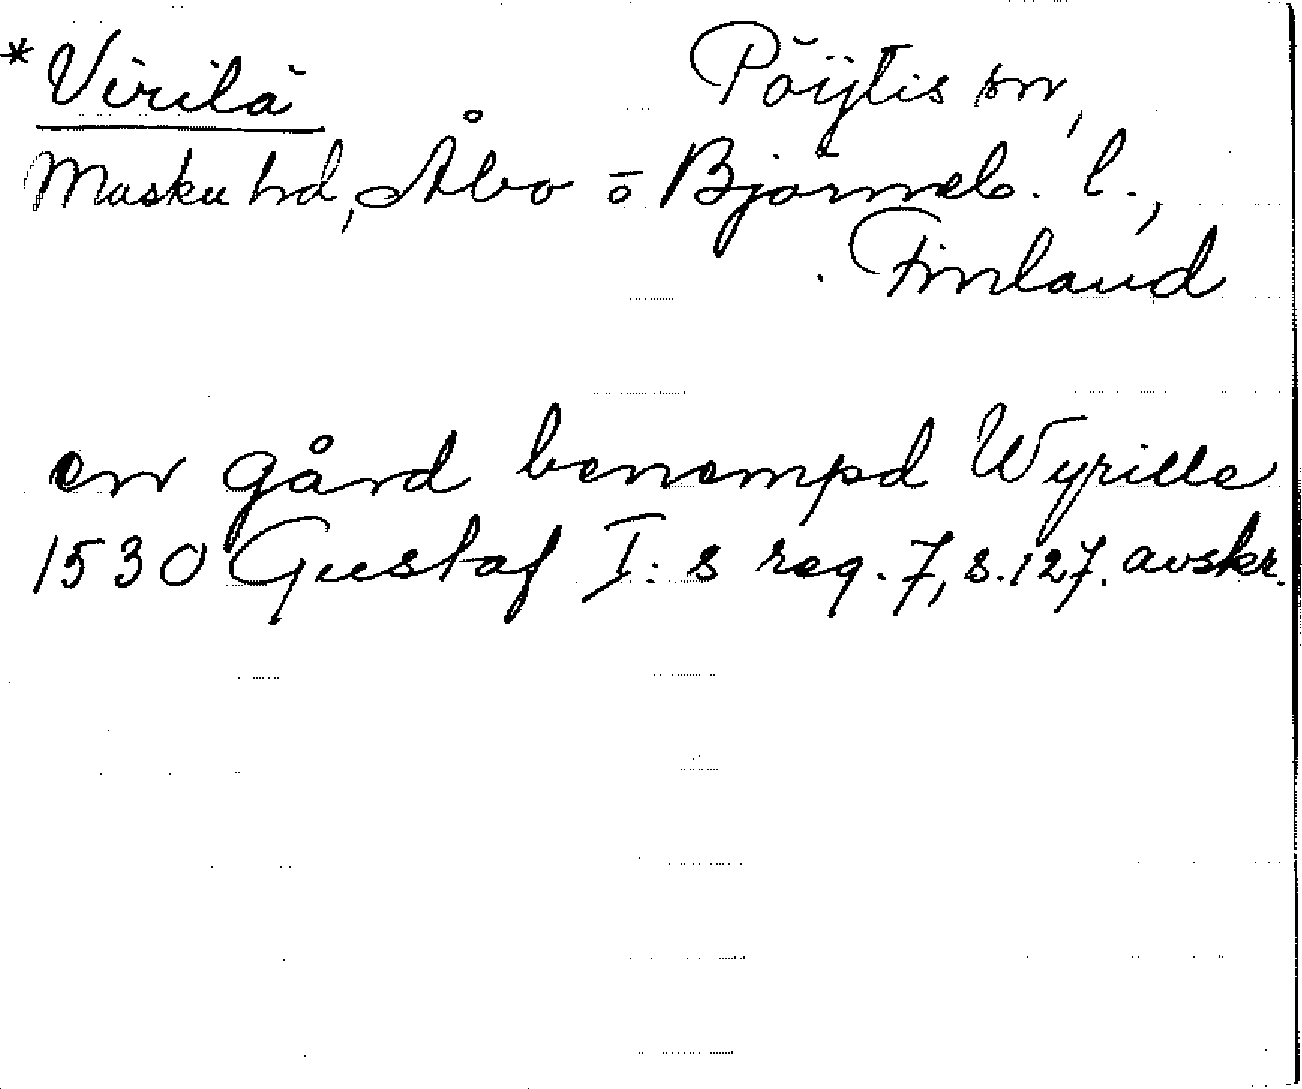 *Virilä Pöijtis sn,
Masku hd, Åbo ō Björneb. l.,
Finland
en gård benempd Wyrille
1530 Gustaf I:s reg. 7, s. 127. avskr.